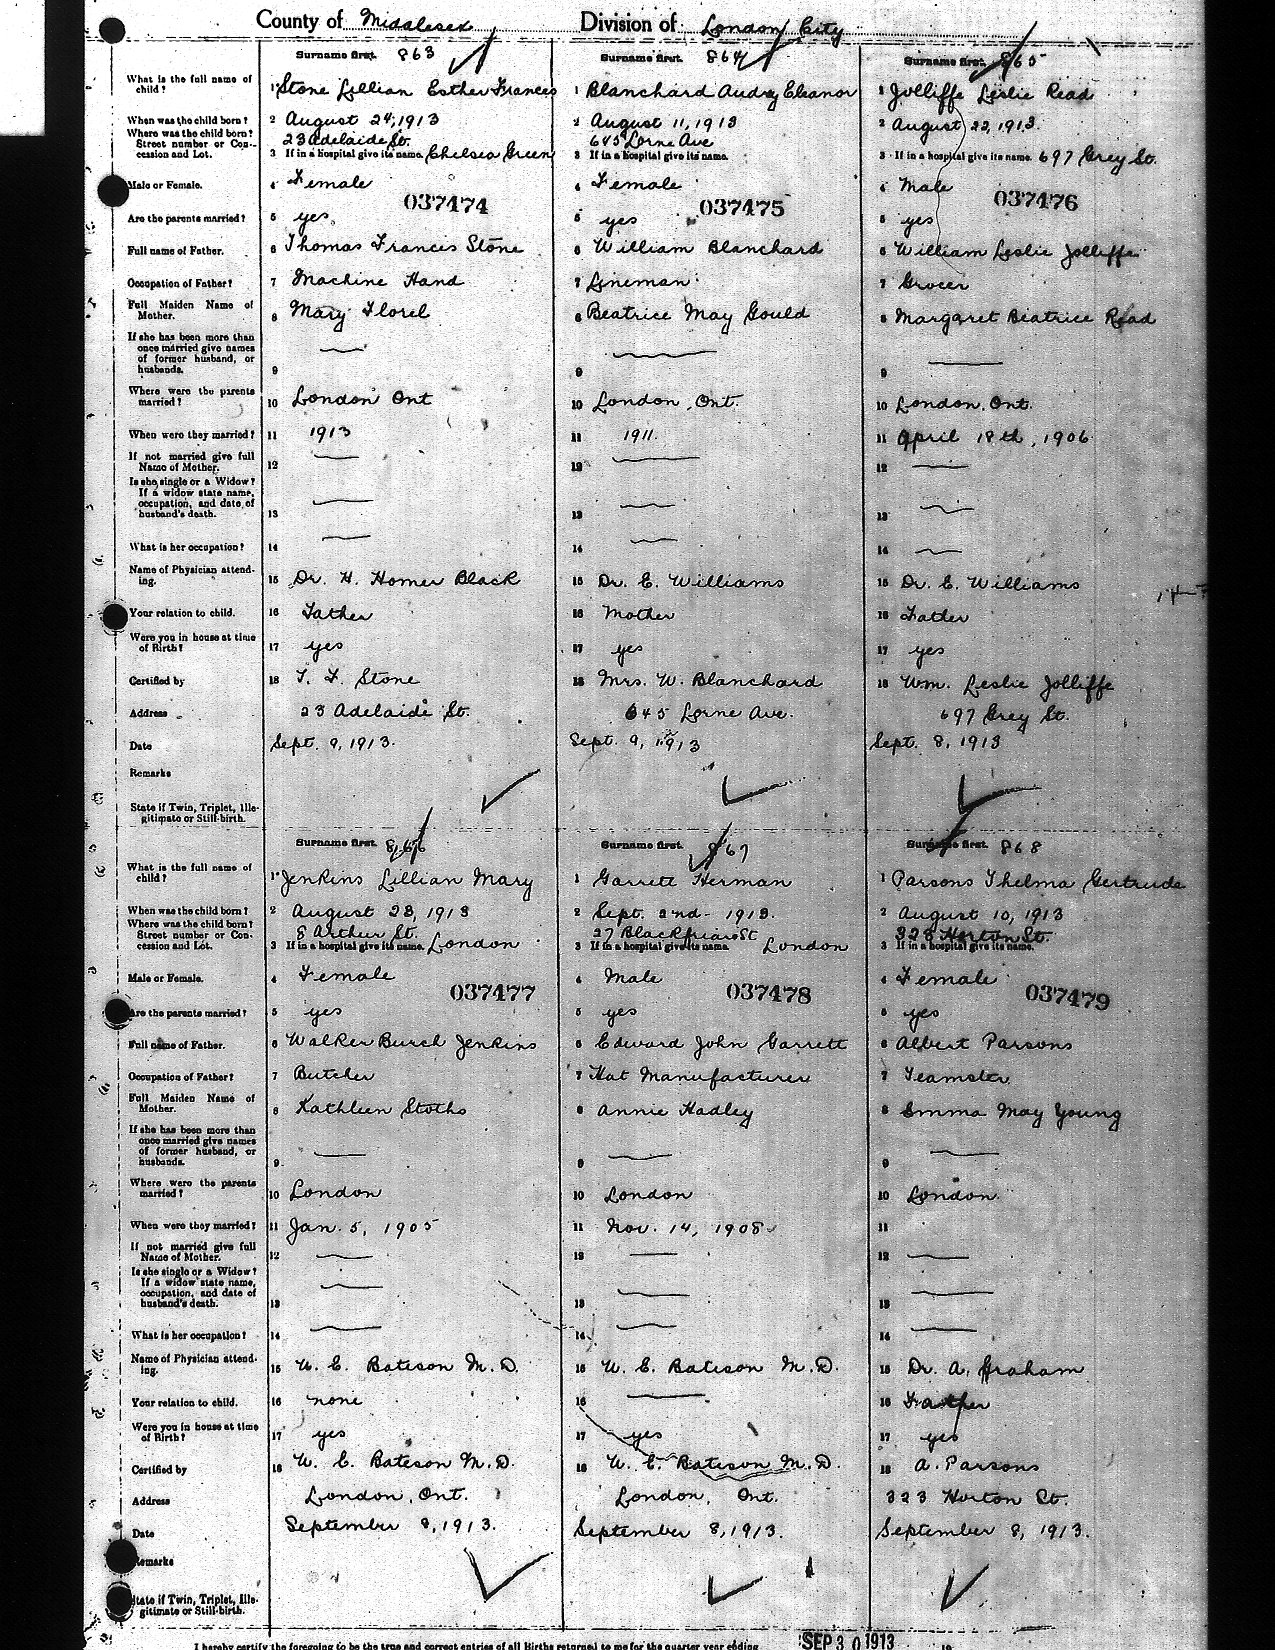 County of Middlesex Division of London City
Surname first. 863 Surname first. 864 Surname first. 865
What is the full name of child? 1 Stone Lillian Esther Frances 1 Blanchard Audrey Eleanor 1 Jolliffe Leslie Read
When was the child born? 2 August 24, 1913 2 August 11, 1913 2 August 22, 1913.
Where was the child born? 23 Adelaide St. 645 Lorne Ave
Street number or Concession and Lot. 3 If in a hospital give its name. Chelsea Green 3 If in a hospital give its name. 3 If in a hospital give its name. 697 Grey St.
Male or Female. 4 Female 4 Female 4 Male
037474 037475 037476
Are the parents married? 5 yes 5 yes 5 yes
Full name of Father. 6 Thomas Francis Stone 6 William Blanchard 6 William Leslie Jolliffe
Occupation of Father? 7 Machine Hand 7 Lineman 7 Grocer
Full Maiden Name of Mother. 8 Mary Florel 8 Beatrice May Gould 8 Margaret Beatrice Read
If she has been more than once married give names of former husband, or husbands. 9 9 9
Where were the parents married? 10 London Ont 10 London, Ont. 10 London, Ont.
When were they married? 11 1913 11 1911. 11 April 18th, 1906
If not married give full Name of Mother. 12 12 12
Is she single or a Widow? If a widow state name, occupation, and date of husband's death. 13 13 13
What is her occupation? 14 14 14
Name of Physician attending. 15 Dr. H. Homer Black 15 Dr. E. Williams 15 Dr. E. Williams
Your relation to child. 16 Father 16 Mother 16 Father
Were you in house at time of Birth? 17 yes 17 yes 17 yes
Certified by 18 T. F. Stone 18 Mrs. W. Blanchard 18 Wm. Leslie Jolliffe
Address 23 Adelaide St. 645 Lorne Ave. 697 Grey St.
Date Sept. 9, 1913. Sept. 9, 1913 Sept. 8, 1913
Remarks
State if Twin, Triplet, Illegitimate or Still-birth.
Surname first. 866 Surname first. 867 Surname first. 868
What is the full name of child? 1 Jenkins Lillian Mary 1 Garrett Herman 1 Parsons Thelma Gertrude
When was the child born? 2 August 23, 1913 2 Sept. 2nd - 1913. 2 August 10, 1913
Where was the child born? 8 Arthur St. 27 Blackfriars St 323 Horton St.
Street number or Concession and Lot. 3 If in a hospital give its name. London 3 If in a hospital give its name London 3 If in a hospital give its name.
Male or Female. 4 Female 4 Male 4 Female
037477 037478 037479
Are the parents married? 5 yes 5 yes 5 yes
Full name of Father. 6 Walker Burch Jenkins 6 Edward John Garrett 6 Albert Parsons
Occupation of Father? 7 Butcher 7 Hat Manufacturer 7 Teamster
Full Maiden Name of Mother. 8 Kathleen Stoths 8 Annie Hadley 8 Emma May Young
If she has been more than once married give names of former husband, or husbands. 9 9 9
Where were the parents married? 10 London 10 London 10 London.
When were they married? 11 Jan. 5, 1905 11 Nov. 14, 1908 11
If not married give full Name of Mother. 12 12 12
Is she single or a Widow? If a widow state name, occupation, and date of husband's death. 13 13 13
What is her occupation? 14 14 14
Name of Physician attending. 15 W. E. Bateson M.D. 15 W. E. Bateson M.D. 15 Dr. A. Graham
Your relation to child. 16 none 16 16 Father
Were you in house at time of Birth? 17 yes 17 yes 17 yes
Certified by 18 W. E. Bateson M.D. 18 W. E. Bateson M.D. 18 A. Parsons
Address London, Ont. London, Ont. 323 Horton St.
Date September 8, 1913. September 8, 1913. September 8, 1913.
Remarks
State if Twin, Triplet, Illegitimate or Still-birth.
I hereby certify the foregoing to be the true and correct entries of all Births returned to me for the quarter year ending SEP 30 1913 19